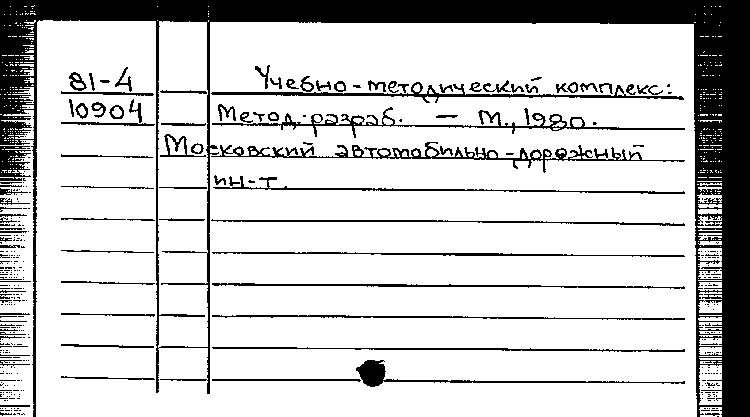 81-4 Учебно-методический комплекс:
10904 Метод. разраб. — М., 1980.
Московский автомобильно-дорожный
ин-т.